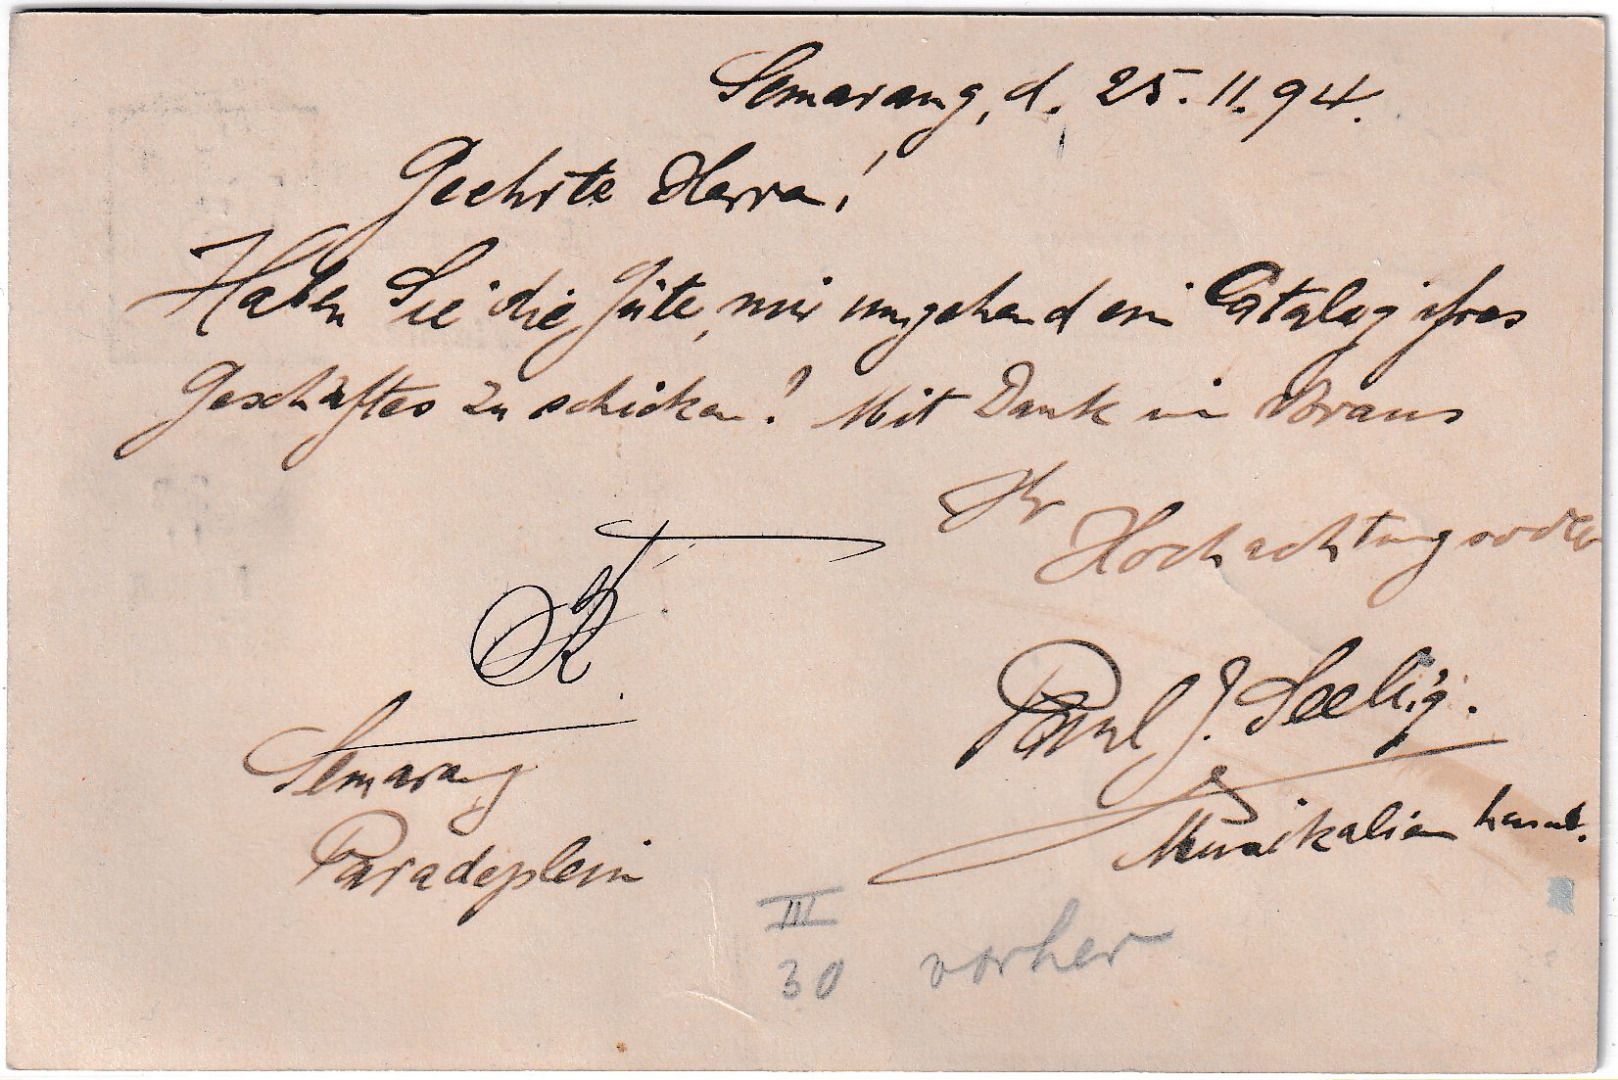 Semarang, d. 25. 11. 94.
Geehrte Herrn!
Haben Sie die Güte, mir umgehend ein Catalog ihres
Geschäftes zu schicken! Mit Dank im Voraus
Ihr
Hochachtungsvoll
Paul J. Seelig.
Musikalien
Semarang
Paradeplein
III
30 vorher